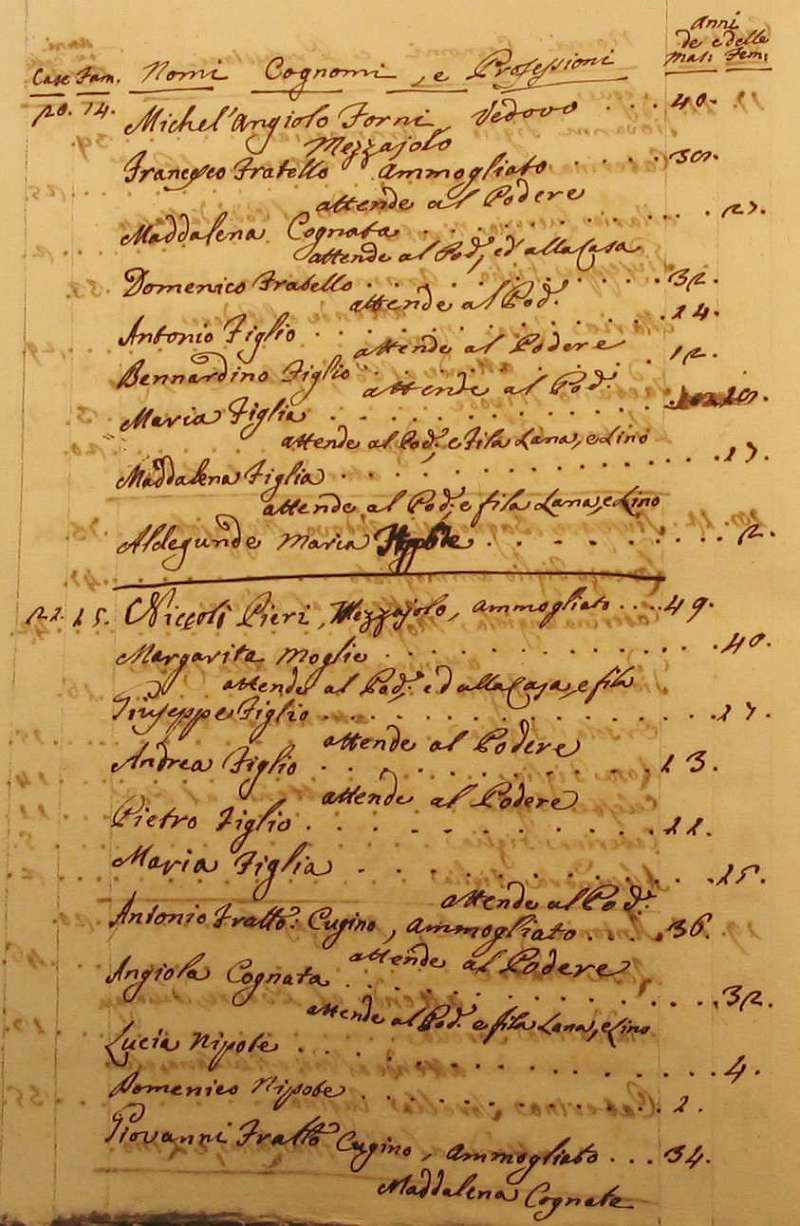 Anni
de e delle
Case Fam. Nomi Cognomi, e Professioni Mas: Fem:
20. 14. Michel'Angiolo Forni, Vedovo . . . 40.
Mezzajolo
Francesco Fratello Ammogliato . . . . 30.
attende al Podere
Maddalena Cognata . . . . . . . . 27.
attende al Pod:, ed alla Casa
Domenico Fratello . . . . . . . . 32.
attende al Pod:
Antonio Figlio . . . . . . . . 14.
attende al Podere
Bernardino Figlio . . . . . . . . 12.
attende al Pod:
Maria Figlia . . . . . . . .
attende al Pod:, e fila Lana, e Lino
Maddalena Figlia . . . . . . . . 17.
attende al Pod: e fila Lana, e Lino
Aldegunde Maria . . . . . . . . 2.
15. Niccolò Pieri, Mezzajolo, ammogliato . . . 49.
Margarita Moglie . . . . . . . . 40.
attende al Pod: ed alla Casa, e fila
Giuseppe Figlio . . . . . . . . 17.
attende al Podere
Andrea Figlio . . . . . . . . 13.
attende al Podere
Pietro Figlio . . . . . . . . 11.
Maria Figlia . . . . . . . . 15.
attende al Pod:
Antonio Fratto: Cugino, Ammogliato . . . . 36.
attende al Podere
Angiola Cognata . . . . . . . . 32.
attende al Pod: e fila Lana, e Lino
Lucia Nipote . . . . . . . . 4.
Domenico Nipote . . . . . . . . 2.
Giovanni Fratto Cugino, Ammogliato . . . 34.
Maddalena Cognata